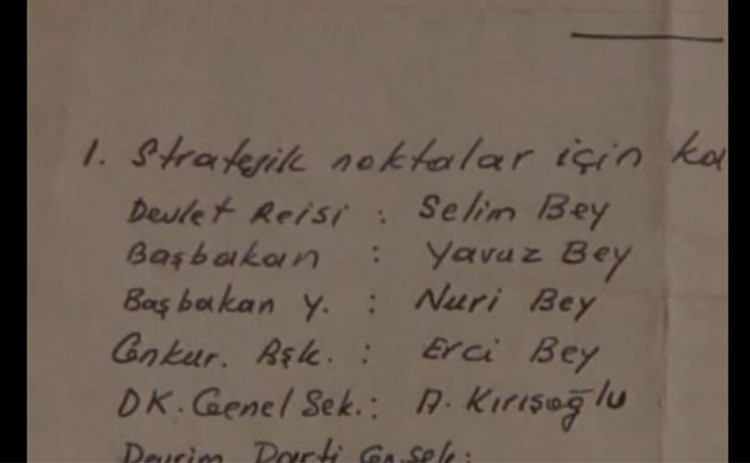 1. Stratejik noktalar için ka
Devlet Reisi : Selim Bey
Başbakan : Yavuz Bey
Başbakan Y. : Nuri Bey
Genkur. Bşk. : Erci Bey
DK. Genel Sek. : A. Kırışoğlu
Devrim Parti Gn. Sek :